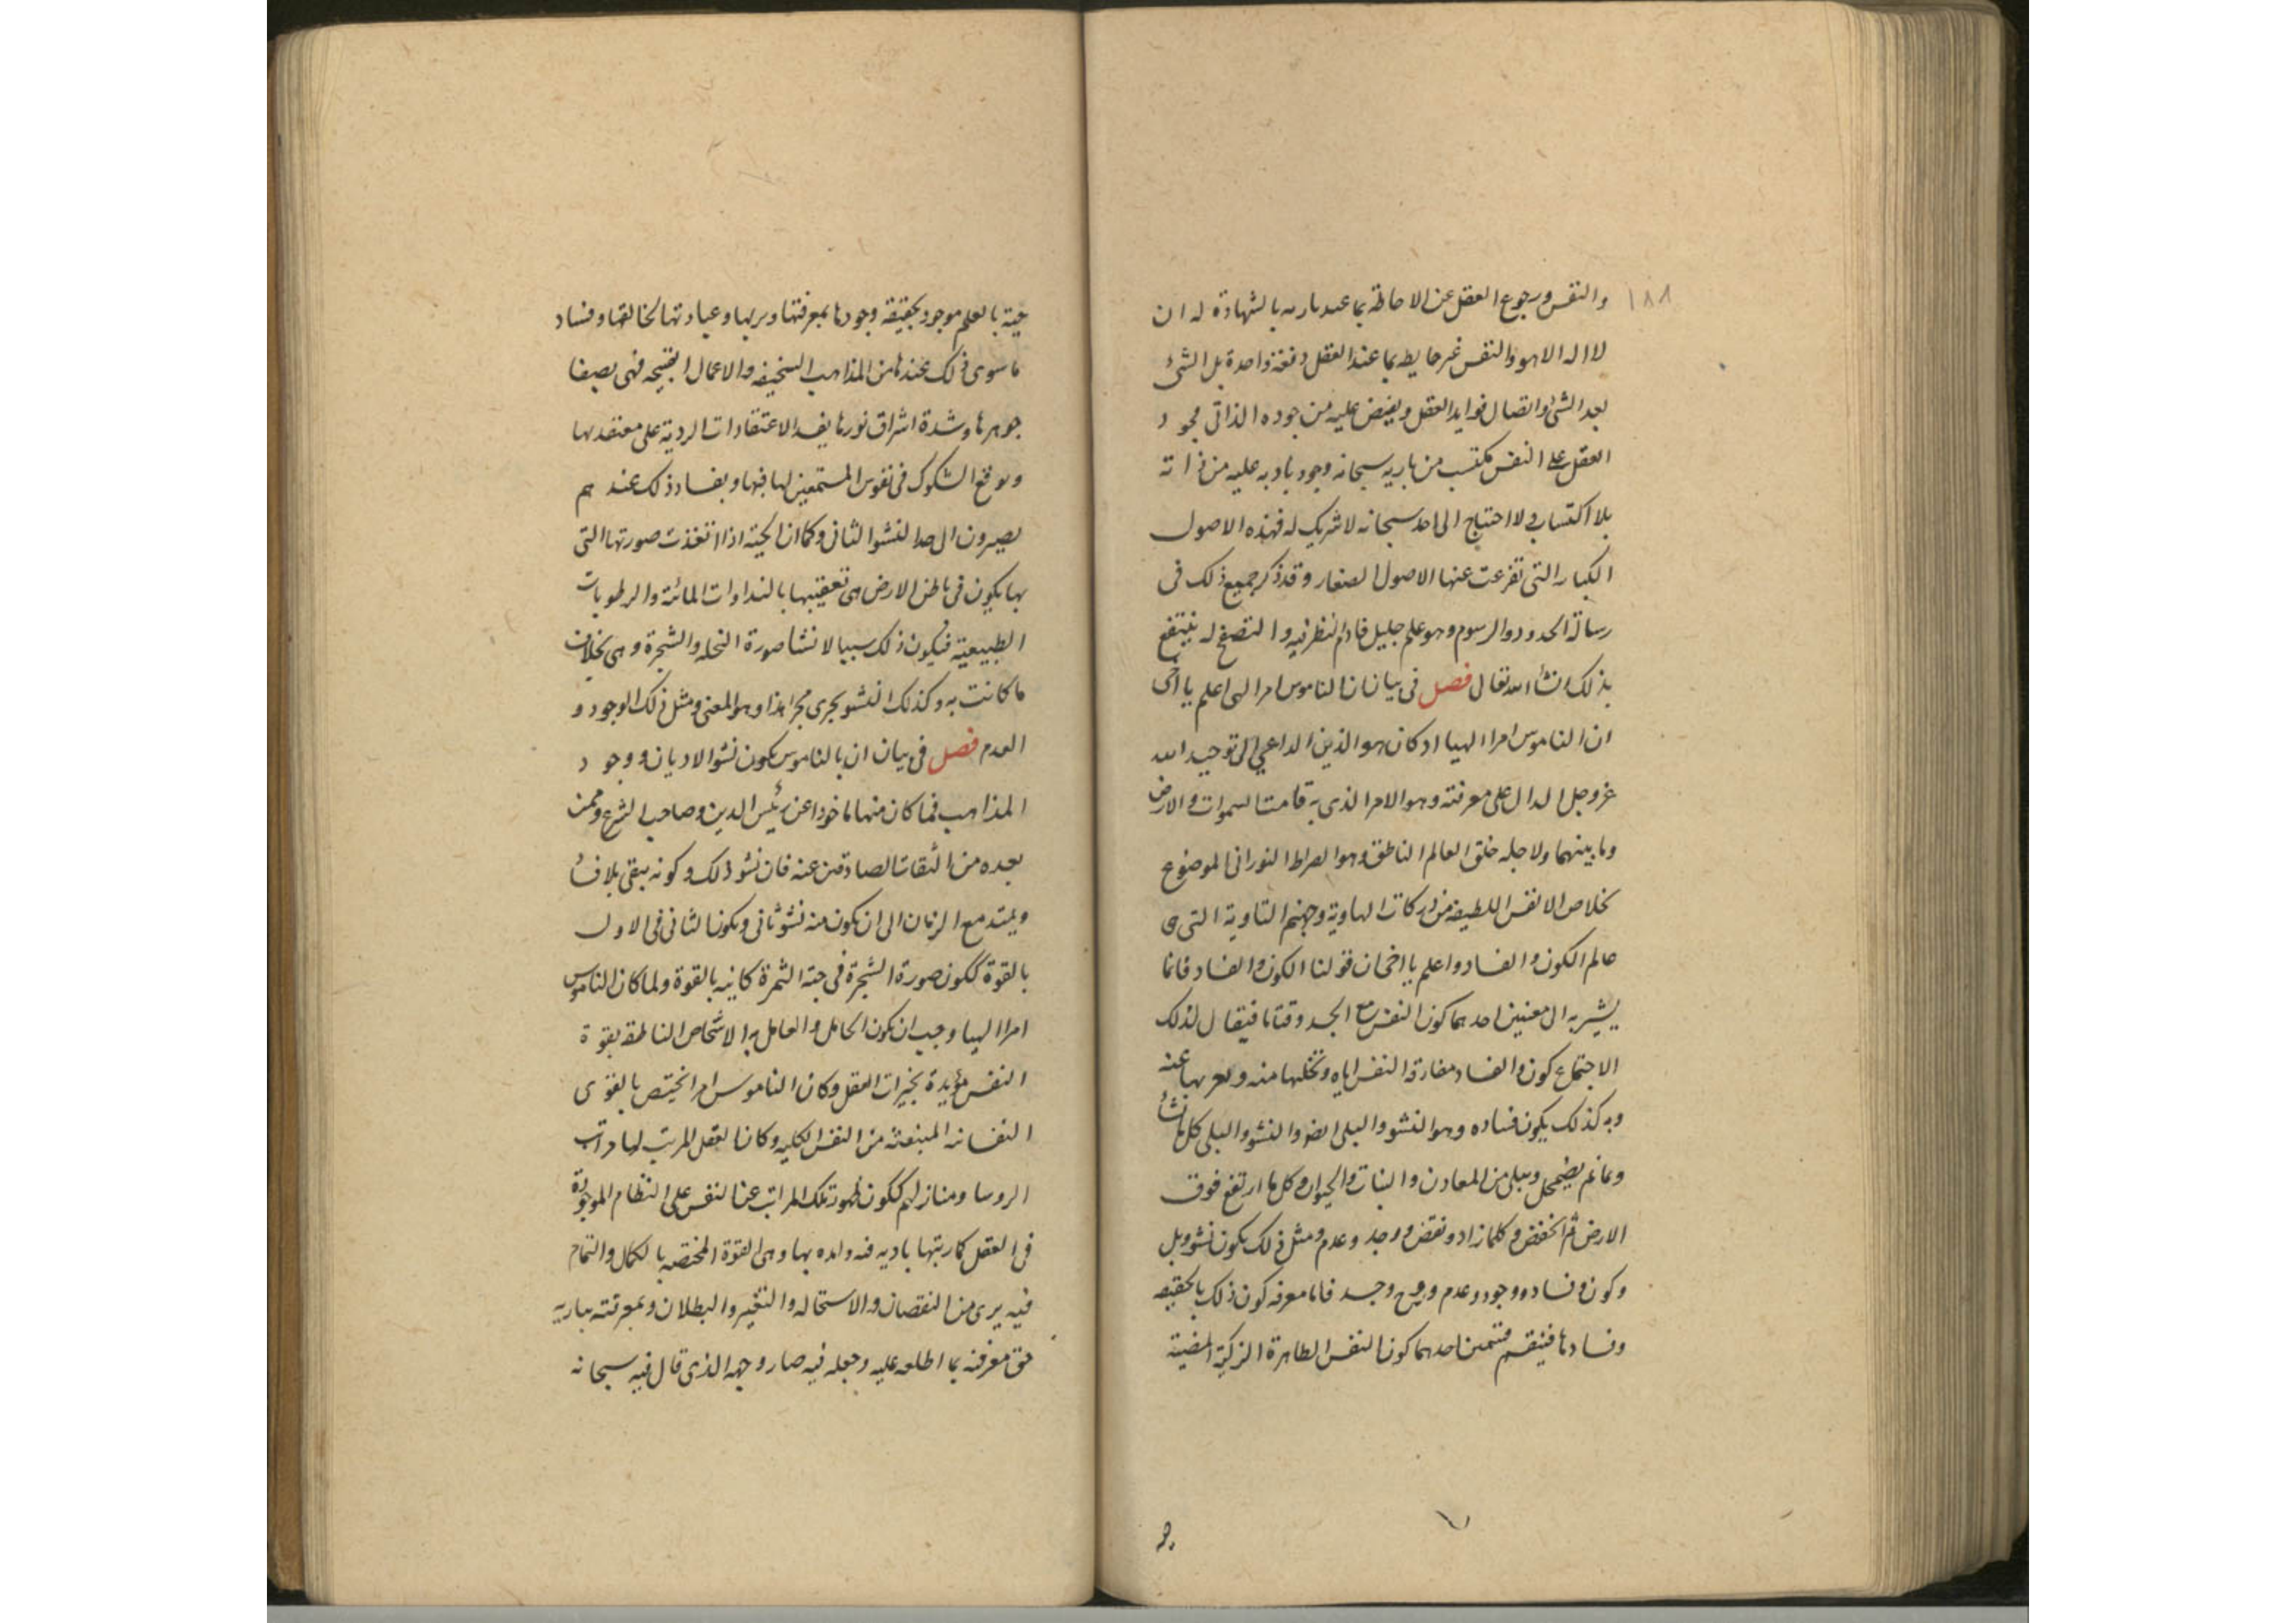 ١٨٨
والنفس ورجوع العقل عن الاحاطة بما عند باريه بالشهادة له ان
لا اله الا هو والنفس غير حايطه بما عند العقل دفعة واحدة بل الشئ
بعد الشئ واتصال فوايد العقل ويفيض عليه من جوده الذاتى فجود
العقل على النفس مكتسب من باريه سبحانه وجود باريه عليه من ذاته
بلا اكتساب ولا احتياج الى احد سبحانه لا شريك له فهذه الاصول
الكبار التى تفرعت عنها الاصول الصغار وقد ذكر جميع ذلك فى
رسالة الحدود والرسوم وهو علم جليل فادم النظر فيه والتصفح له ينتفع
بذلك انشأ الله تعالى فصل فى بيان ان الناموس امر الهى اعلم يا اخى
ان الناموس امرا الهيا اذ كان هو الدين الداعى الى توحيد الله
عز وجل الدال على معرفته وهو الامر الذى به قامت السموات والارض
وما بينهما ولاجله خلق العالم الناطق وهو الصراط النورانى الموضوع
لخلاص الانفس اللطيفه من دركات الهاوية وجهنم التاوية التى هى
عالم الكون والفساد واعلم يا اخى ان قولنا الكون والفساد فانما
يشير به الى معنيين احدهما كون النفس مع الجسد وقتا ما فيقال لذلك
الاجتماع كون والفساد مفارقة النفس اياه وتخليها منه عنه
وبه كذلك يكون فساده وهو النشو والبلى ايضا والنشو والبلى كل ما نشأ
ونما ثم يضمحل ويبلى من المعادن والنبات والحيوان وكل ما ارتفع فوق
الارض ثم انخفض وكلما زاد ونقص ووجد وعدم ومثل ذلك يكون نشو وبلى
وكون وفساد ووجود وعدم وروح وجسد فاما معرفة كون ذلك بالحقيقه
وفسادها فينقسم قسمين احدهما كون النفس الطاهرة الزكية المضيئة
حيّة بالعلم موجود بحقيقة وجودها بمعرفتها وبربها وعبادتها لخالقها وفساد
ما سوى ذلك عندها من المذاهب السخيفه والاعمال القبيحه فهى بصفا
جوهرها وشدة اشراق نورها يفسد الاعتقادات الردية على معتقديها
ويوقع الشكوك فى نفوس المستمعين لها فيها وبفساد ذلك عندهم
يصيرون الى حد النشو الثانى وكما ان الحبة اذا انتفذت صورتها التى
بها يكون فى باطن الارض هى تعقبها بالنداوات المائة والرطوبات
الطبيعية فيكون ذلك سببا لانشا صورة النخله والشجرة وهى بخلاف
ما كانت به وكذلك النشو يجرى مجرا هذا وهو المعنى ومثل ذلك الوجود و
العدم فصل فى بيان ان بالناموس يكون نشو الاديان ووجود
المذاهب فما كان منها ماخوذا عن رئيس الدين وصاحب الشرع وممن
بعده من الثقات الصادقين عنه فان نشو ذلك وكونه يبقى بلا فسا
ويمتد مع الزمان الى ان يكون منه نشو ثانى ويكون الثانى فى الاول
بالقوة ككون صورة الشجرة فى حبة الثمرة كاينه بالقوة ولما كان الناموس
امرا الهيا وجب ان يكون الحامل والعامل به الاشخاص الناطقه بقوة
النفس مؤيدة بخيرات العقل وكان الناموس امرا يختص بالقوى
النفسانه المنبعثه من النفس الكليه وكان العقل المرتب لها مراتب
الروسا ومنازلهم ككون ظهور تلك المراتب عن النفس على النظام الموجودة
فى العقل كما رتبها باريه فيه وايده بها وهى القوة المختصه بالكمال والتمام
فيه برى من النقصان والاستحاله والتغيير والبطلان وبمعرفته بباريه
حق معرفته بما اطلعه عليه وجعله فيه صار وجهه الذى قال فيه سبحانه